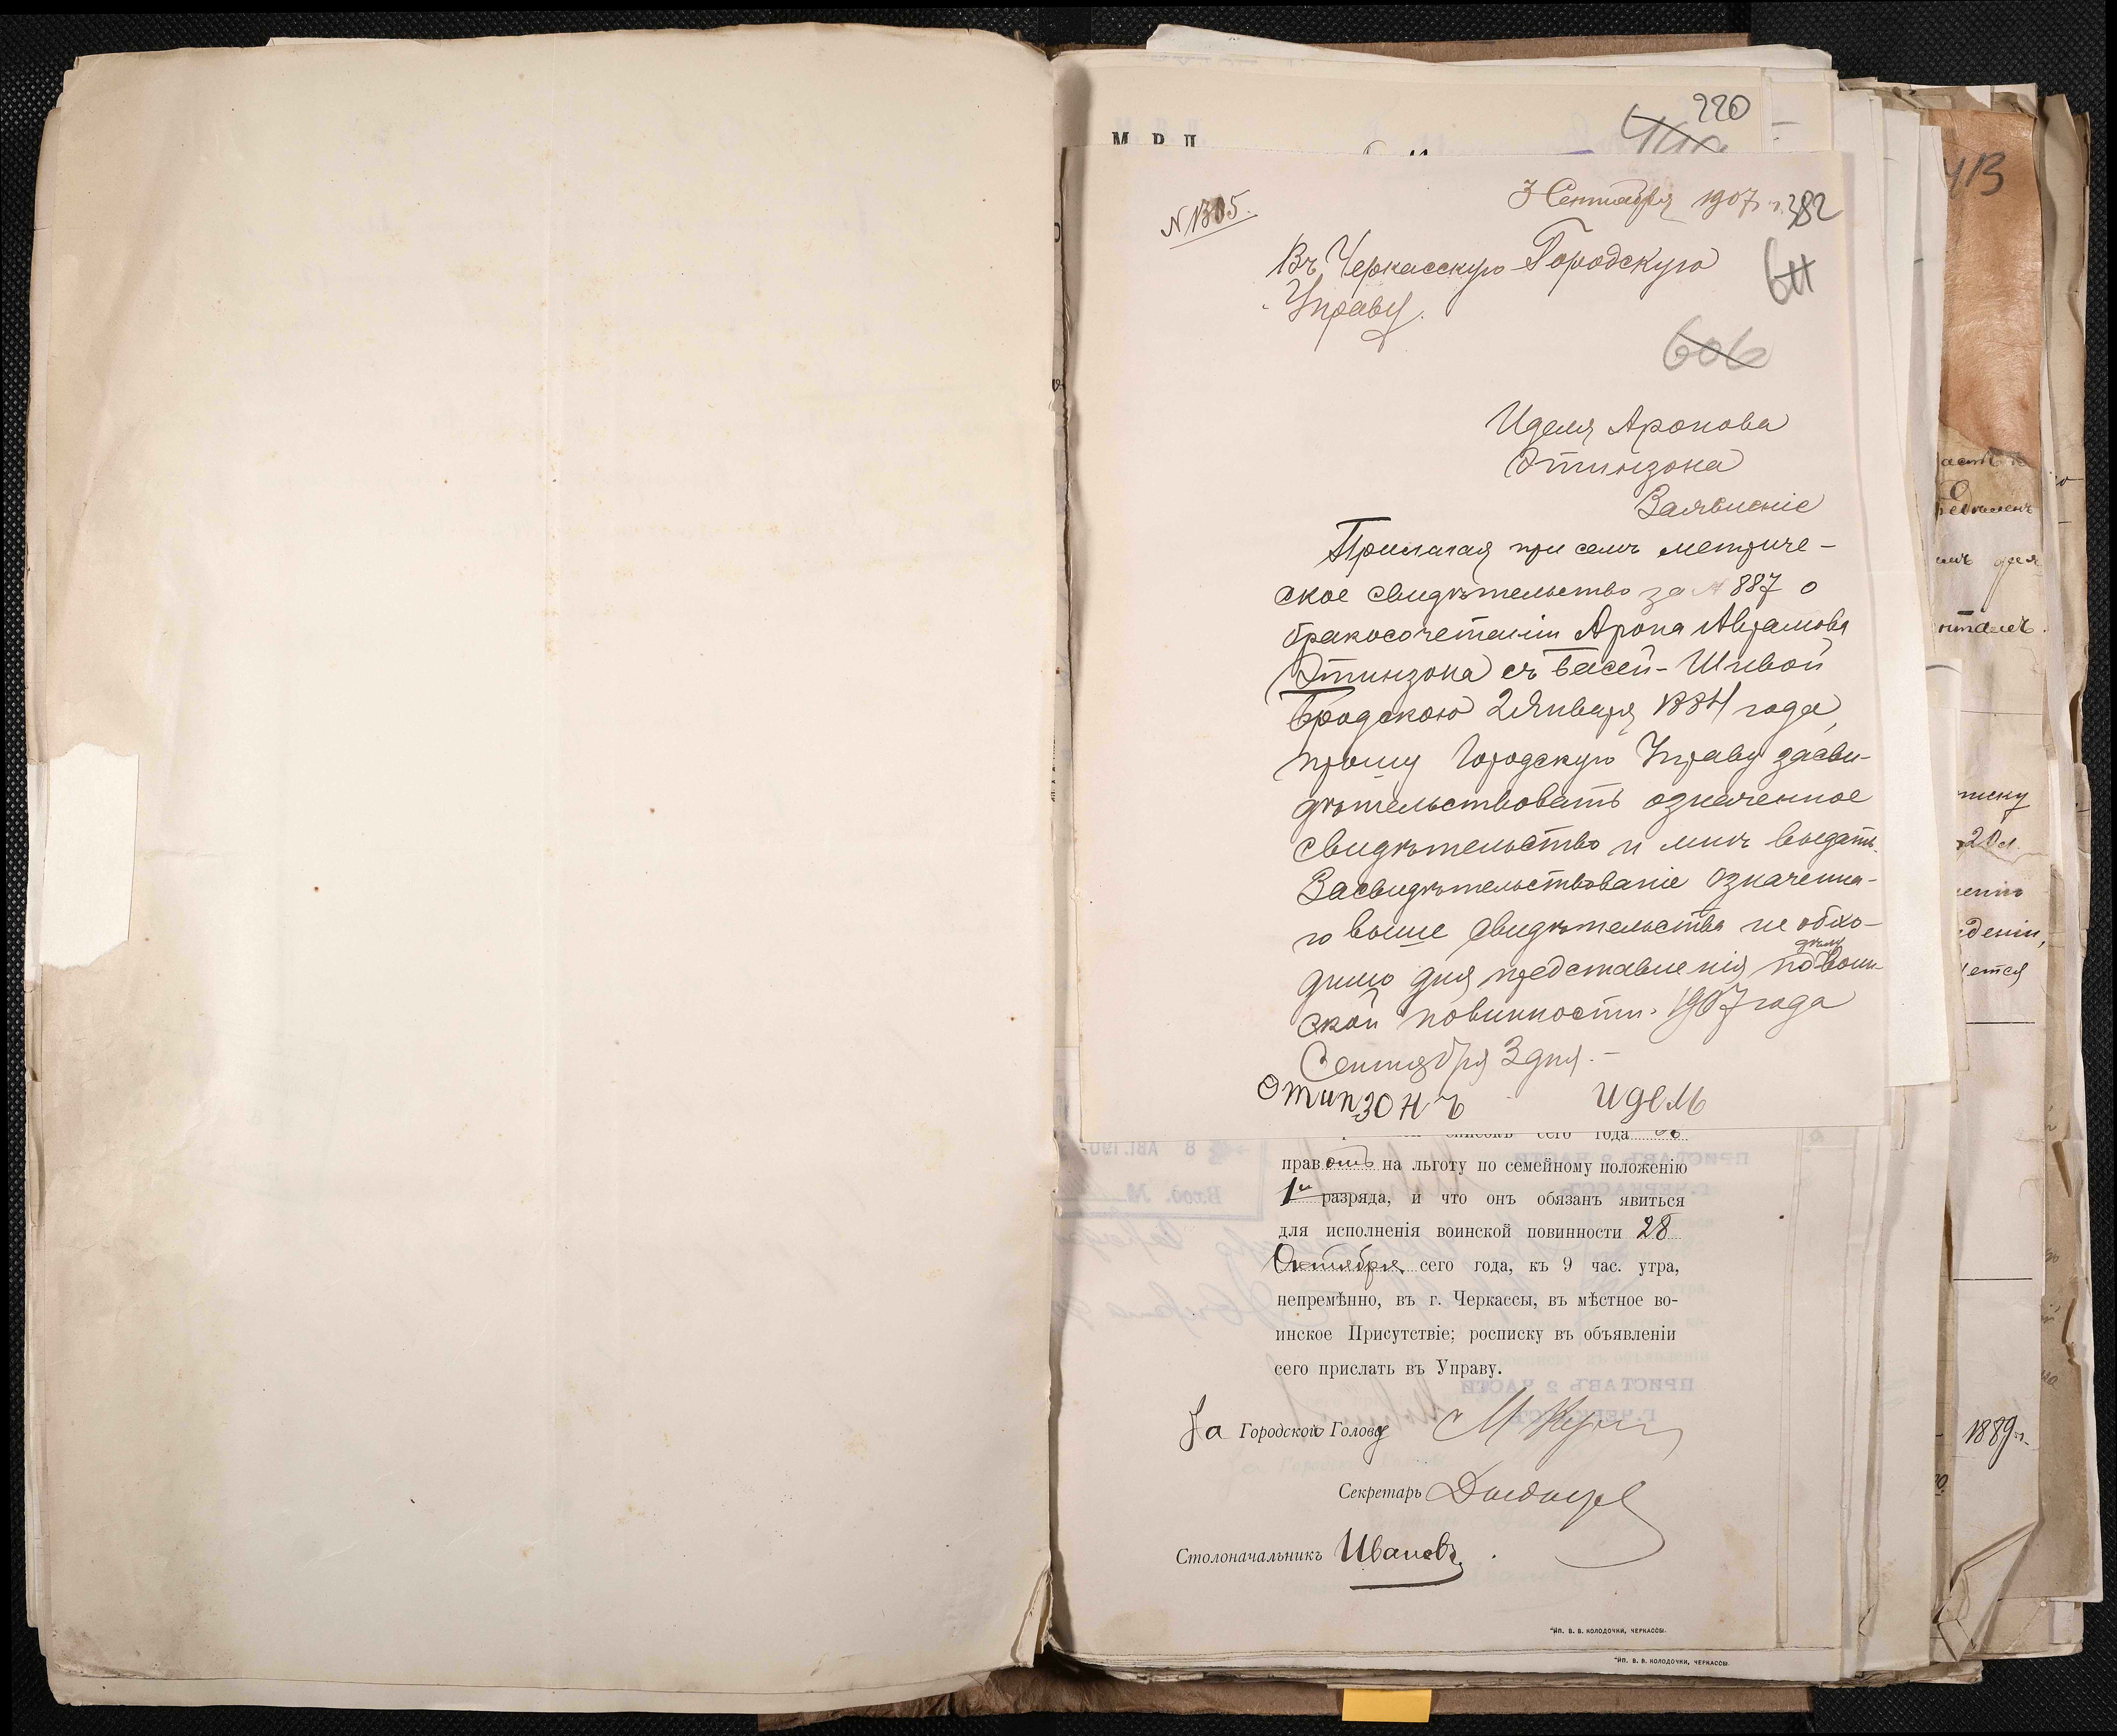 220
М В Д
N 1305.
3 Сентября 1907 г. 382
Въ Черкасскую Городскую
Управу.
611
606
Иделя Аронова
Этинзона
Заявленіе
Прилагая при семъ метриче-
ское свидѣтельство за № 887 о
бракосочетаніи Арона Аврамова
Этинзона съ Басей-Шивой
Бродскою 2 Января 1884 года,
прошу Городскую Управу засви-
дѣтельствовать означенное
свидѣтельство и мнѣ выдать.
Засвидѣтельствованіе означенна-
го выше свидѣтельства не обхо-
димо для представленія по дѣлу воин-
ской повинности. 1907 года
Сентября 3 дня. —
Этинзонъ Идель
списокъ сего года
прав на льготу по семейному положенію
1го разряда, и что онъ обязанъ явиться
для исполненія воинской повинности 28
Октября сего года, къ 9 час. утра,
непремѣнно, въ г. Черкассы, въ мѣстное во-
инское Присутствіе; росписку въ объявленіи
сего прислать въ Управу.
За Городского Голову
Секретарь
Столоначальникъ Ивановъ.
Тип. В. В. КОЛОДОЧКИ, ЧЕРКАССЫ.
Тип. В. В. КОЛОДОЧКИ, ЧЕРКАССЫ.
413
20
1889 г.